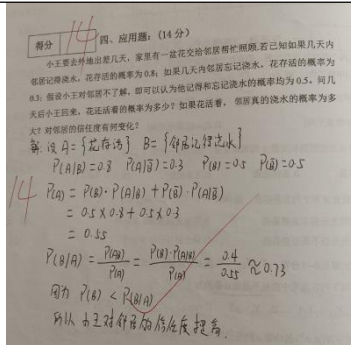 得分 14 四、应用题:(14分)
小王要去外地出差几天,家里有一盆花交给邻居帮忙照顾,若已知如果几天内
邻居记得浇水,花存活的概率为0.8;如果几天内邻居忘记浇水,花存活的概率为
0.3;假设小王对邻居不了解,即可以认为他记得和忘记浇水的概率均为0.5。问几
天后小王回来,花还活着的概率为多少?如果花活着,邻居真的浇水的概率为多
大?对邻居的信任度有何变化?
解:设A={花存活} B={邻居记得浇水}
P(A|B)=0.8 P(A|B̅)=0.3 P(B)=0.5 P(B̅)=0.5
14 P(A)=P(B)·P(A|B)+P(B̅)·P(A|B̅)
=0.5×0.8+0.5×0.3
=0.55
P(B|A)=P(AB)/P(A)=P(B)·P(A|B)/P(A)=0.4/0.55≈0.73
因为 P(B)<P(B|A)
所以小王对邻居的信任度提高.